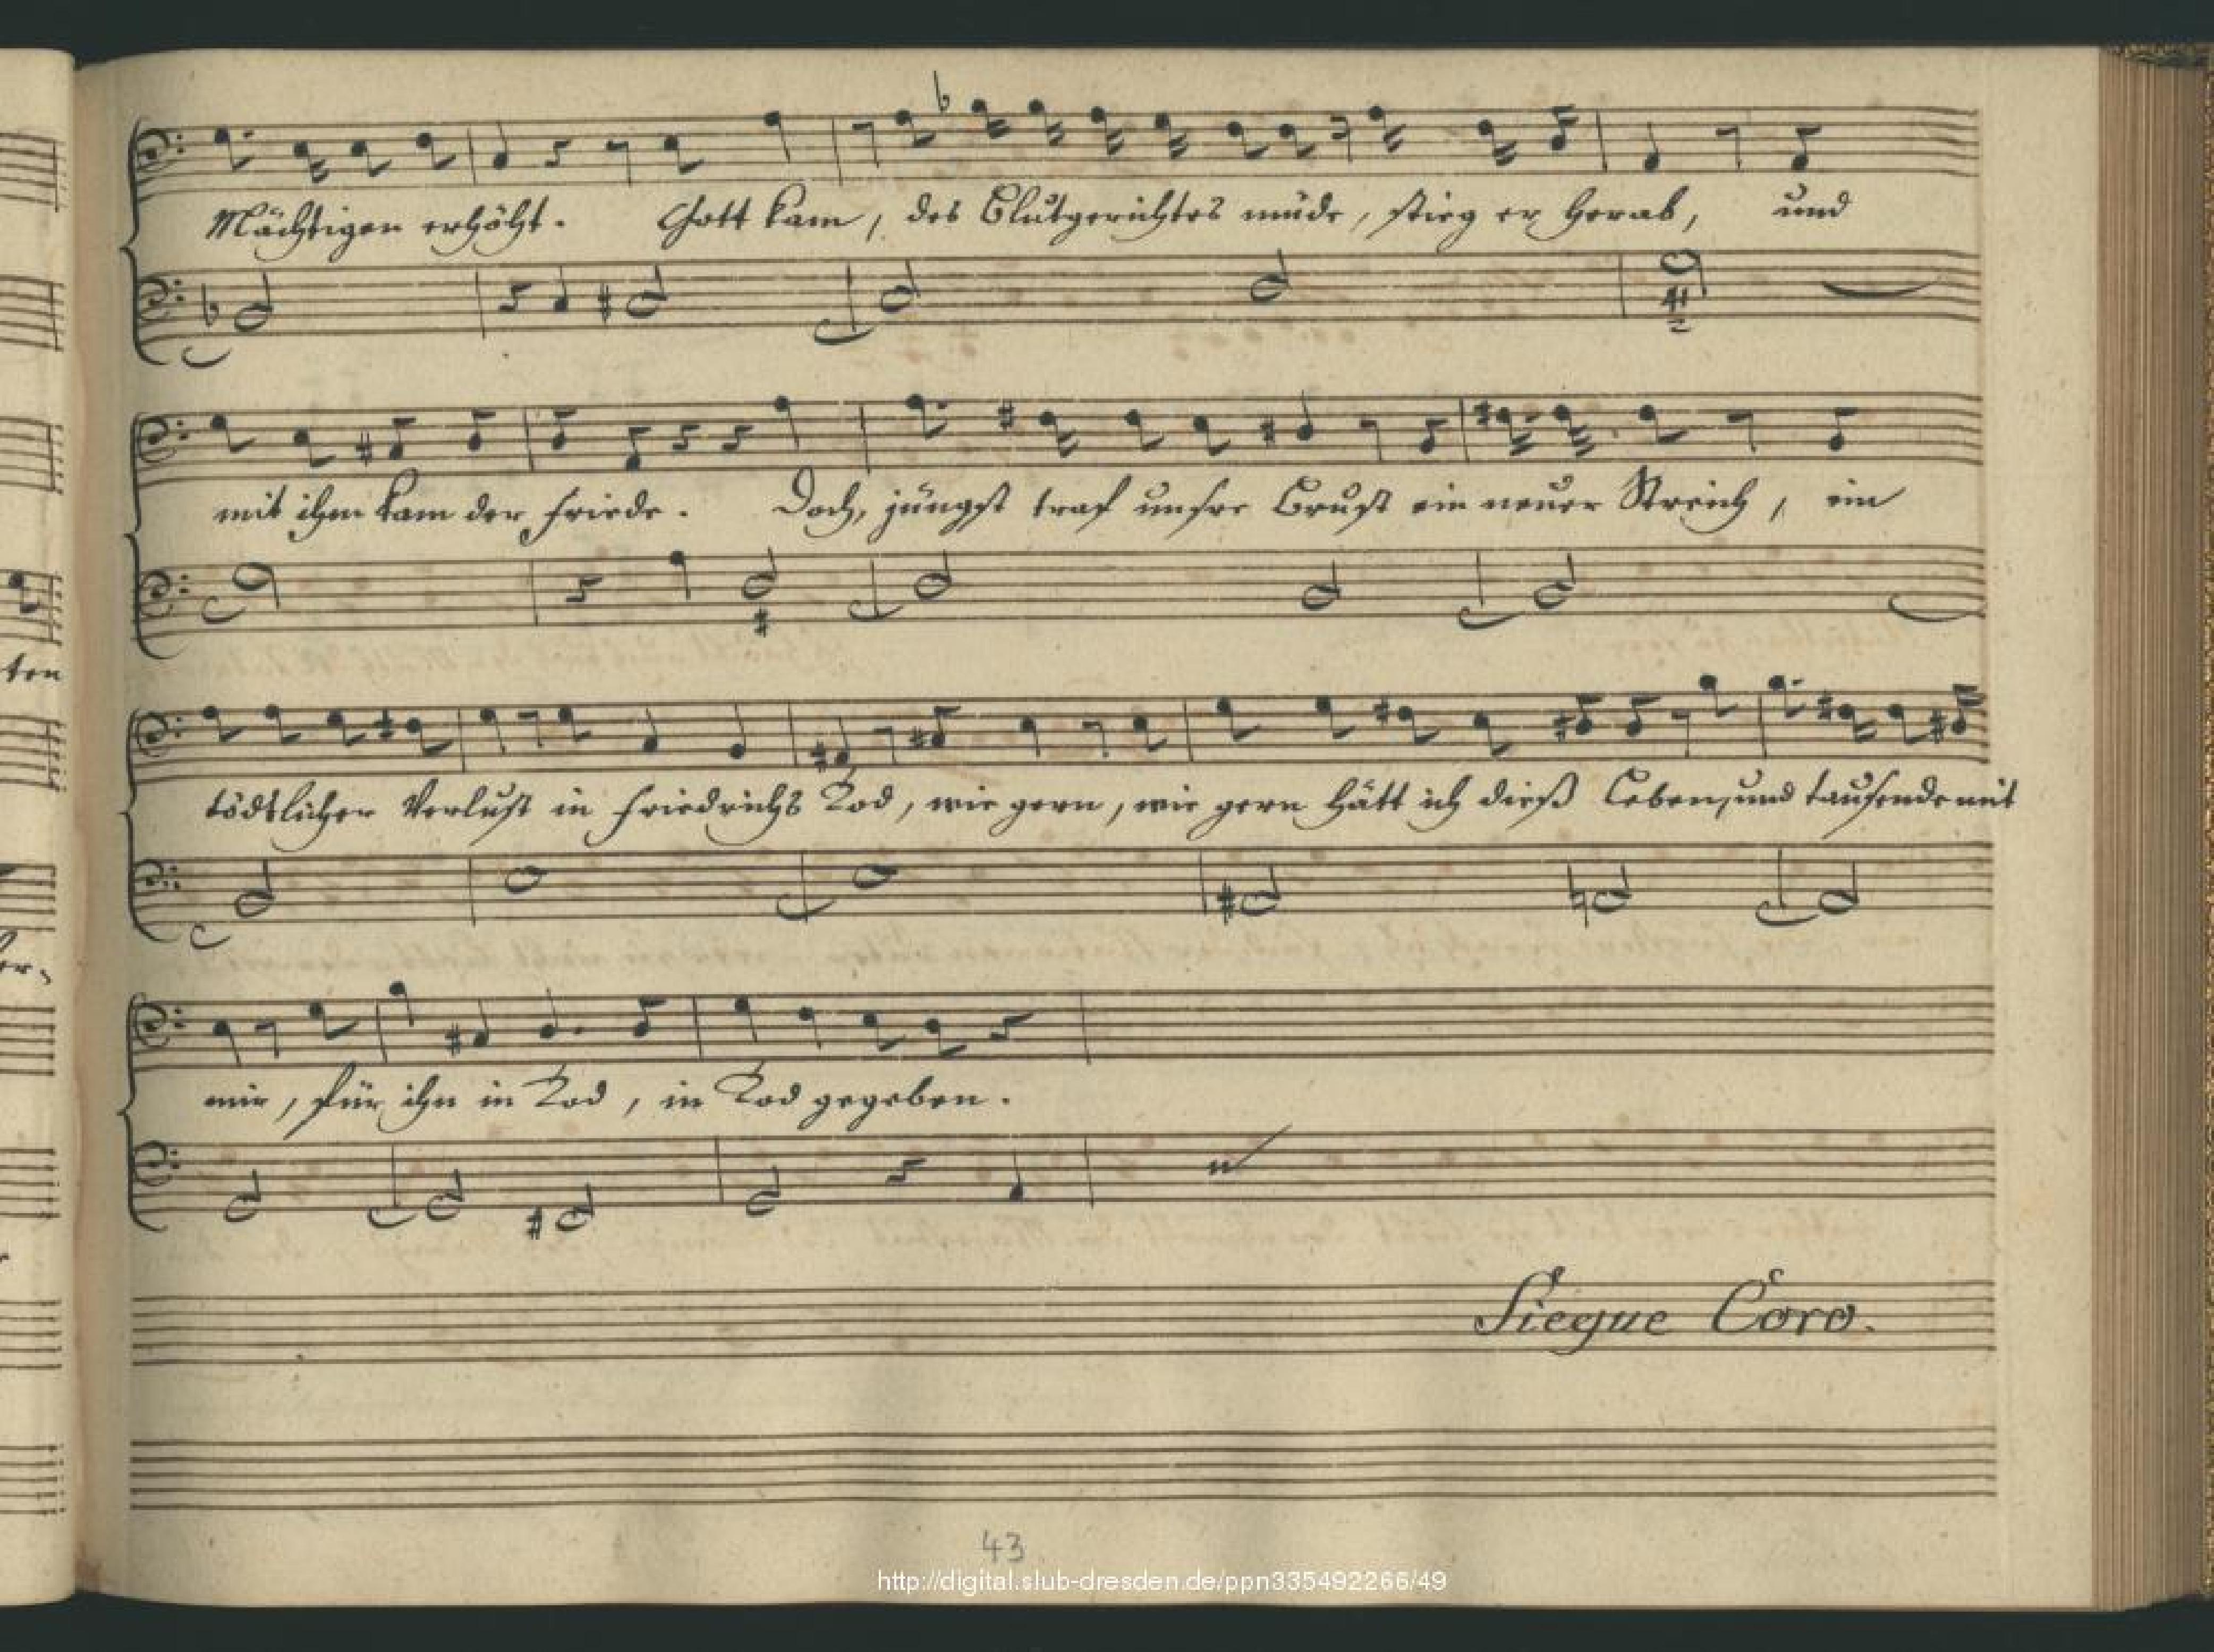 Mächtigen erhöht. Gott kam, des Blutgerichtes müde, stieg er herab, und
mit ihm kam der Friede. Doch, jüngst traf unsre Brust ein neuer Streich, ein
ten
tödtlicher Verlust in Friedrichs Tod, wie gern, wie gern hätt ich dieß Leben, und tausende mit
mir, für ihn in Tod, in Tod gegeben.
Siegue Coro.
43
http://digital.slub-dresden.de/ppn335492266/49